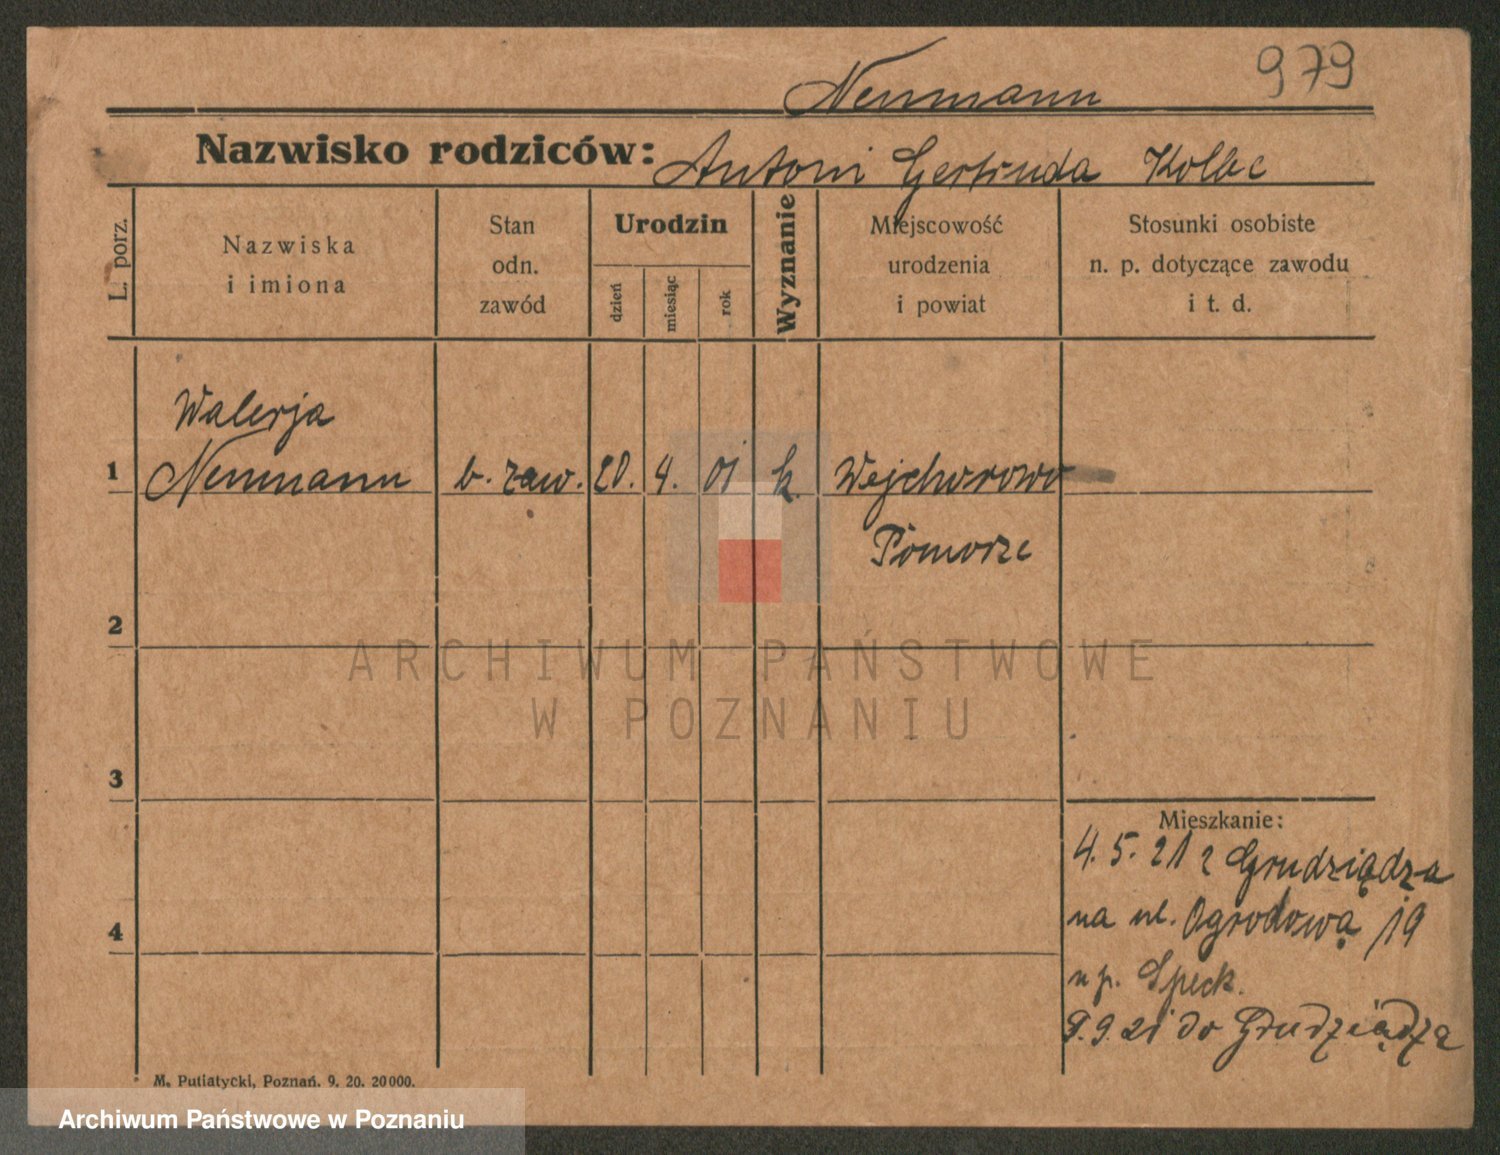 979
Neumann
Nazwisko rodziców: Antoni Gertruda Kolbe
L. porz.
Nazwiska
i imiona
Stan
odn.
zawód
Urodzin
dzień
miesiąc
rok
Wyznanie
Miejscowość
urodzenia
i powiat
Stosunki osobiste
n. p. dotyczące zawodu
i t. d.
Walerja
1 Neumann b. zaw. 20. 4. 01 k. Wejcherowo
Pomorze
2
ARCHIWUM PAŃSTWOWE
W POZNANIU
3
Mieszkanie:
4. 5. 21 z Grudziądza
na ul. Ogrodową 19
4
u p. Speck.
9. 9. 21 do Grudziądza
M. Putiatycki, Poznań. 9. 20. 20000.
Archiwum Państwowe w Poznaniu